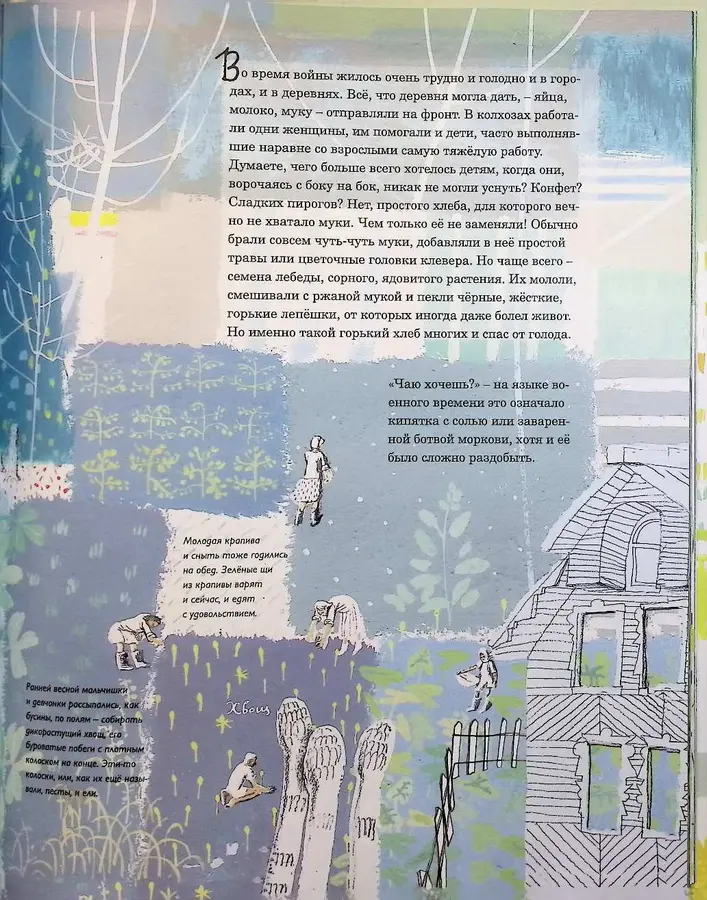 Во время войны жилось очень трудно и голодно и в горо-
дах, и в деревнях. Всё, что деревня могла дать, – яйца,
молоко, муку – отправляли на фронт. В колхозах работа-
ли одни женщины, им помогали и дети, часто выполняв-
шие наравне со взрослыми самую тяжёлую работу.
Думаете, чего больше всего хотелось детям, когда они,
ворочаясь с боку на бок, никак не могли уснуть? Конфет?
Сладких пирогов? Нет, простого хлеба, для которого веч-
но не хватало муки. Чем только её не заменяли! Обычно
брали совсем чуть-чуть муки, добавляли в неё простой
травы или цветочные головки клевера. Но чаще всего –
семена лебеды, сорного, ядовитого растения. Их мололи,
смешивали с ржаной мукой и пекли чёрные, жёсткие,
горькие лепёшки, от которых иногда даже болел живот.
Но именно такой горький хлеб многих и спас от голода.
«Чаю хочешь?» – на языке во-
енного времени это означало
кипятка с солью или заварен-
ной ботвой моркови, хотя и её
было сложно раздобыть.
Молодая крапива
и сныть тоже годились
на обед. Зелёные щи
из крапивы варят
и сейчас, и едят
с удовольствием.
Ранней весной мальчишки
и девчонки рассыпались, как
бусины, по полям – собирать
дикорастущий хвощ, его
буроватые побеги с плотным
колоском на конце. Эти-то
колоски, или, как их ещё назы-
вали, песты, и ели.
Хвощ